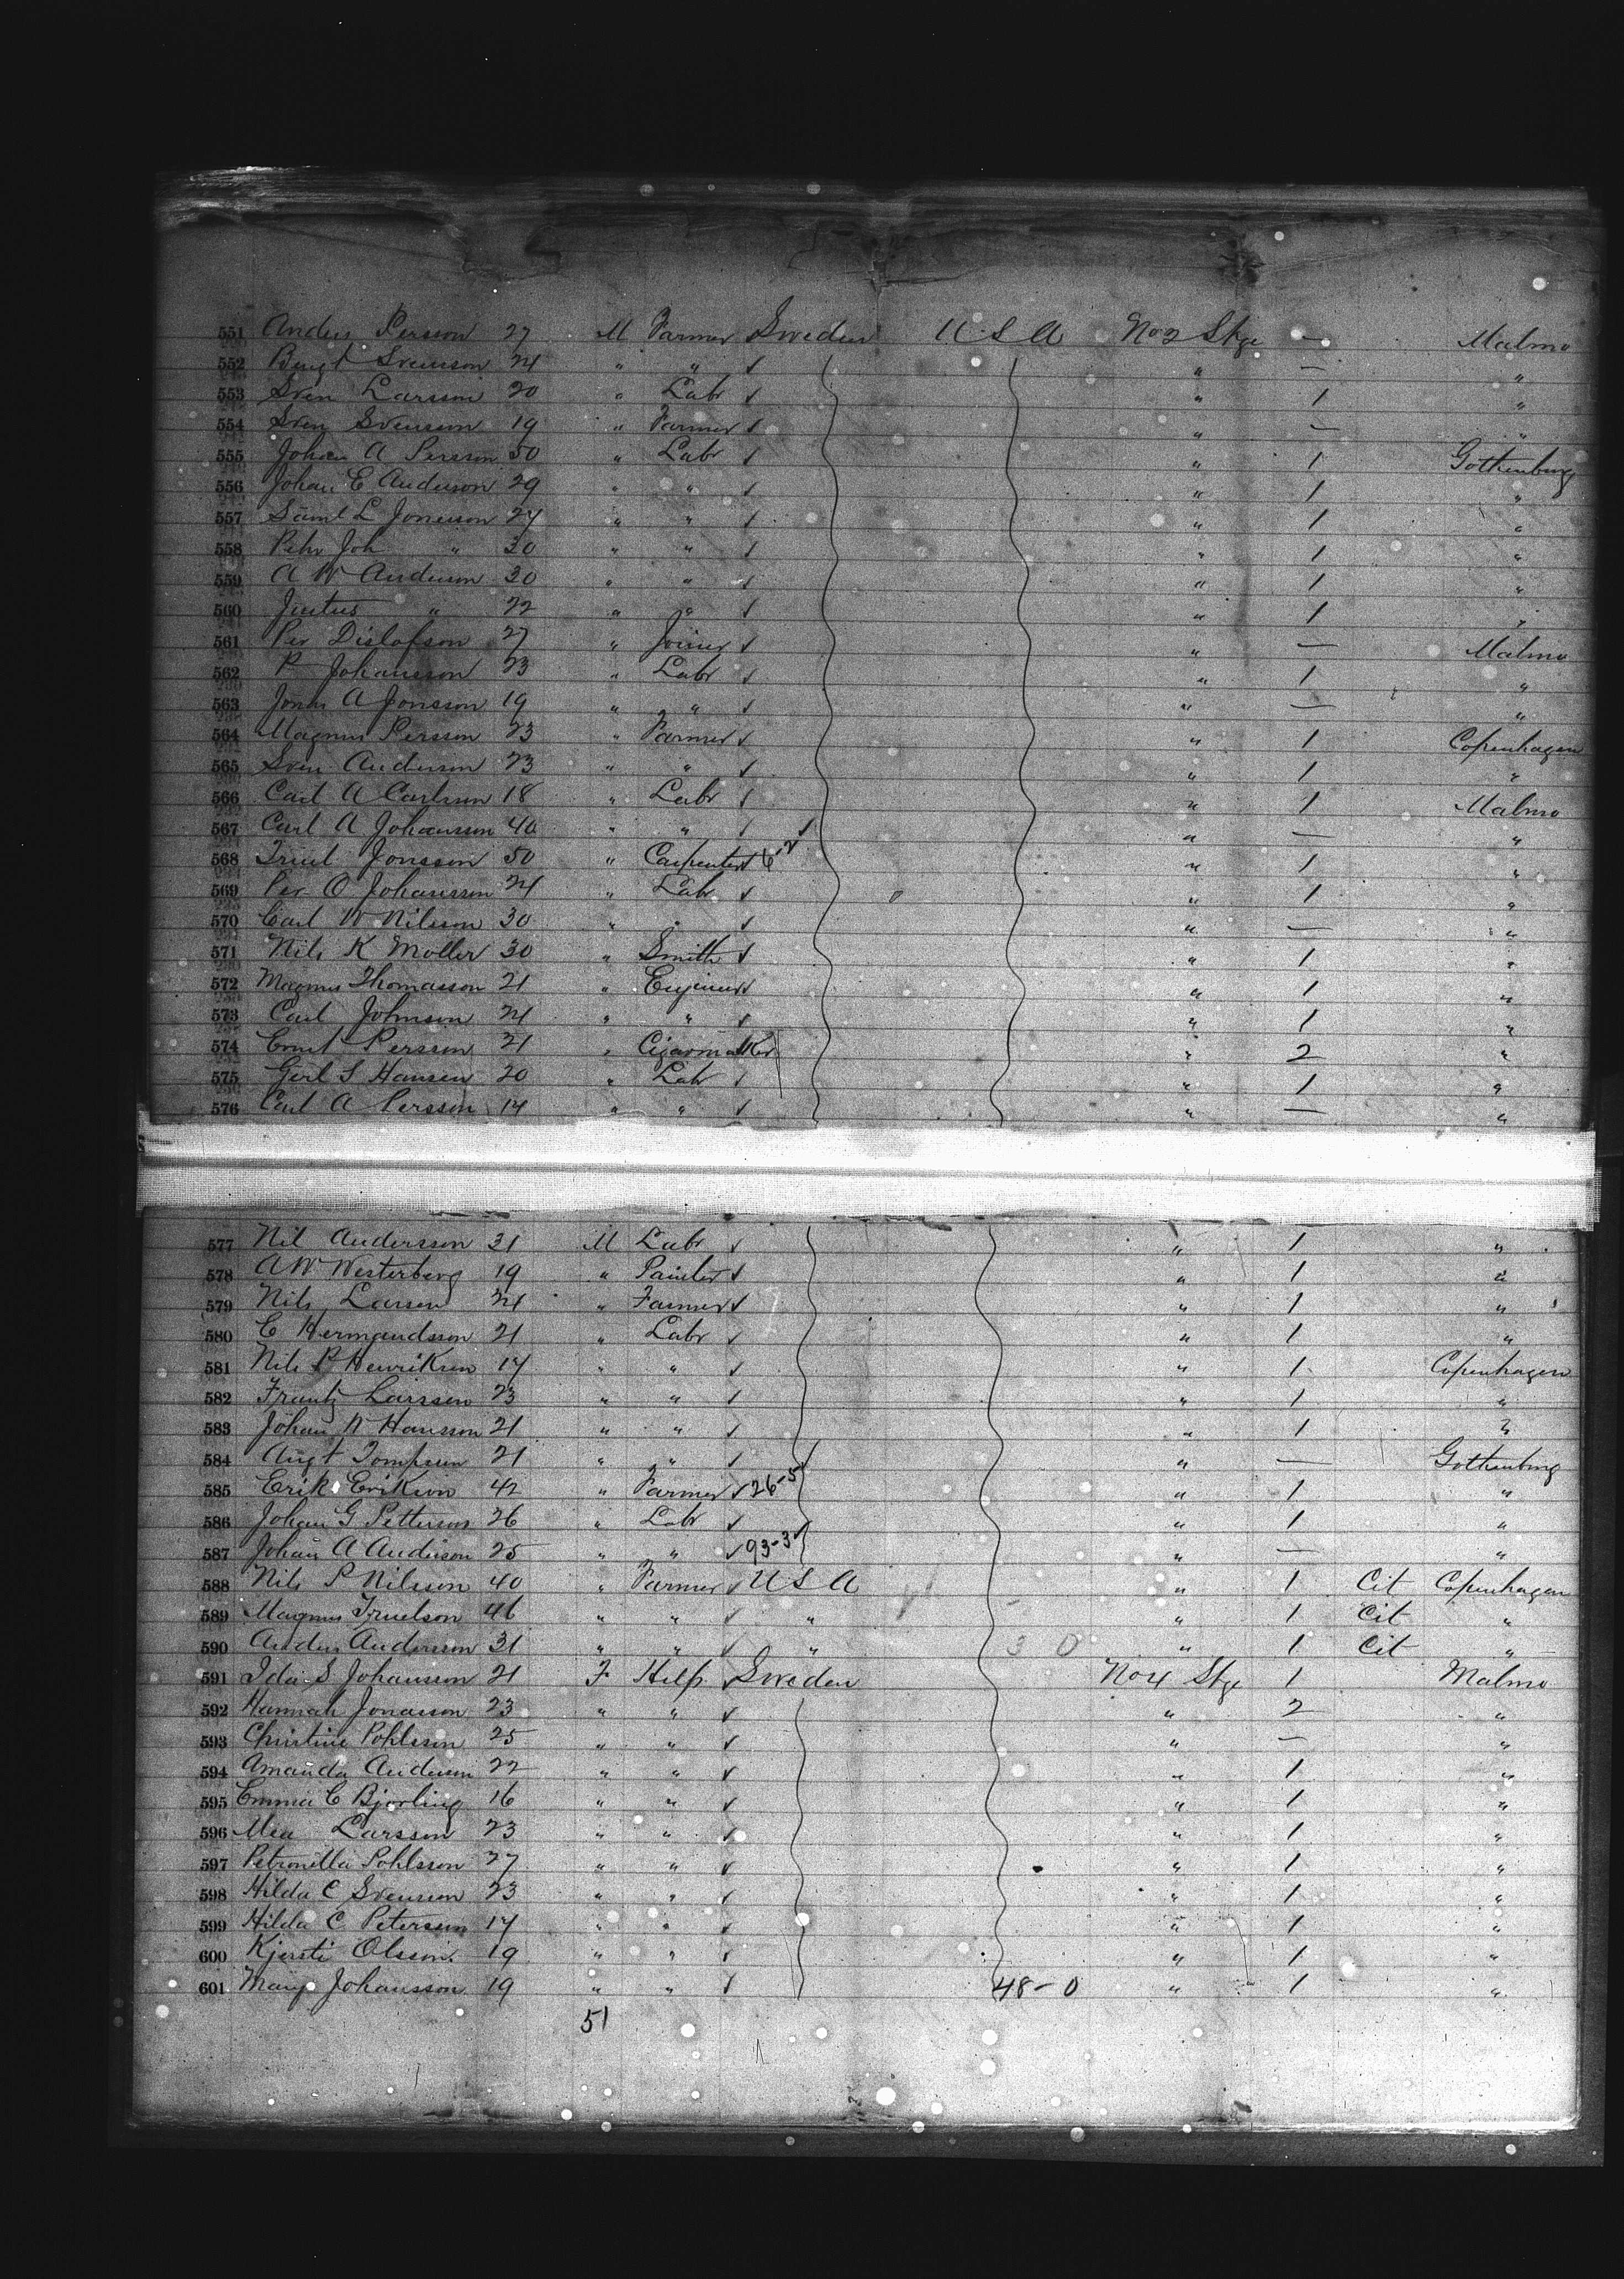 551 Anders Persson 27 M Farmer Sweden U S A No 2 Stge — Malmo
552 Bengt Svensson 24 " " " — "
553 Sven Larsson 20 " Labr " 1 "
554 Sven Svensson 19 " Farmer " — "
555 Johan A Persson 50 " Labr " 1 Gothenburg
556 Johan E Anderson 29 " " " 1 "
557 Saml L Jonsson 27 " " " 1 "
558 Pehr Joh " 30 " " " 1 "
559 A W Anderson 30 " " " 1 "
560 Justus " 22 " " " 1 "
561 Per Dislofson 27 " Joiner " — Malmo
562 P Johansson 23 " Labr " 1 "
563 Jonas A Jonsson 19 " " " — "
564 Magnus Persson 23 " Farmer " 1 Copenhagen
565 Sven Anderson 23 " " " 1 "
566 Carl A Carlsson 18 " Labr " 1 Malmo
567 Carl A Johansson 40 " " " — "
568 Truel Jonsson 50 " Carpenter 6-2 " 1 "
569 Per O Johansson 24 " Labr " 1 "
570 Carl W Nilsson 30 " " " — "
571 Nils K Moller 30 " Smith " 1 "
572 Magnus Thomasson 21 " Engineer " 1 "
573 Carl Johnson 24 " " " 1 "
574 Ernst Persson 21 " Cigarmaker " 2 "
575 S Hansen 20 " Labr " 1 "
576 Carl A Persson 17 " " " — "
577 Nil Andersson 31 M Labr " 1 "
578 A W Westerberg 19 " Painter " 1 "
579 Nils Larsen 24 " Farmer " 1 "
580 C Hermandsson 21 " Labr " 1 "
581 Nils P Henriksen 17 " " " 1 Copenhagen
582 Frantz Larsson 23 " " " 1 "
583 Johan N Hansson 21 " " " 1 "
584 Augt Tompsen 21 " " " — Gothenburg
585 Erik Erikson 42 " Farmer 26-5 " 1 "
586 Johan G Petterson 26 " Labr " 1 "
587 Johan A Anderson 25 " " 93-3 " — "
588 Nils P Nilsson 40 " Farmer U S A " 1 Cit Copenhagen
589 Magnus Truelson 46 " " " " 1 Cit "
590 Anders Andersson 31 " " " 3 0 " 1 Cit "
591 Ida S Johansson 21 F Help Sweden No 4 Stge 1 Malmo
592 Hannah Jonasson 23 " " " 2 "
593 Christine Pohlsson 25 " " " — "
594 Amanda Anderson 22 " " " 1 "
595 Emma C Bjorling 16 " " " 1 "
596 Larsson 23 " " " 1 "
597 Petronilla Pohlsson 27 " " " 1 "
598 Hilda C Svensson 23 " " " 1 "
599 Hilda C Peterson 17 " " " 1 "
600 Kjersti Olsson 19 " " " 1 "
601 Johansson 19 " " 48-0 " 1 "
51